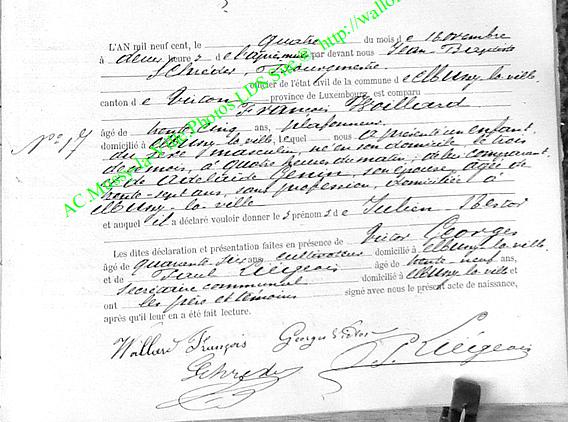 L'AN mil neuf cent, le quatre du mois de Novembre
à deux heures de l'après midi par devant nous Jean-Baptiste
Schréder, Bourgmestre
officier de l'état civil de la commune de Mussy-la-ville
canton de Virton province de Luxembourg, est comparu
François Wallard
âgé de trente cinq ans, plafonneur
domicilié à Mussy la ville, lequel nous a présenté un enfant
du sexe masculin, né en son domicile le trois
de ce mois, à quatre heures du matin, de lui comparant
et de Adélaïde Genin, son épouse, âgée de
trente-sept ans, sans profession, domiciliée à
Mussy-la-ville
et auquel il a déclaré vouloir donner les prénoms de Julien Nestor
Les dites déclaration et présentation faites en présence de Victor Georges
âgé de quarante-six ans, cultivateur domicilié à Mussy-la-ville
et de Paul Liégeois âgé de trente-neuf ans,
secrétaire communal domicilié à Mussy la ville et
ont les père et témoins signé avec nous le présent acte de naissance,
après qu'il leur en a été fait lecture.
Wallard François Georges Victor
P. Liégeois
Schréder
N° 17
AC Mussy-la-Ville Photos LDS Site @ http://wallo